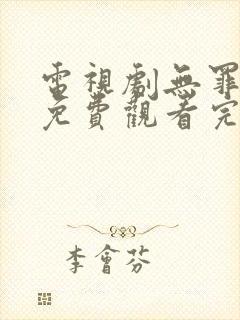 電視劇無罪
免費觀看完
李會芬